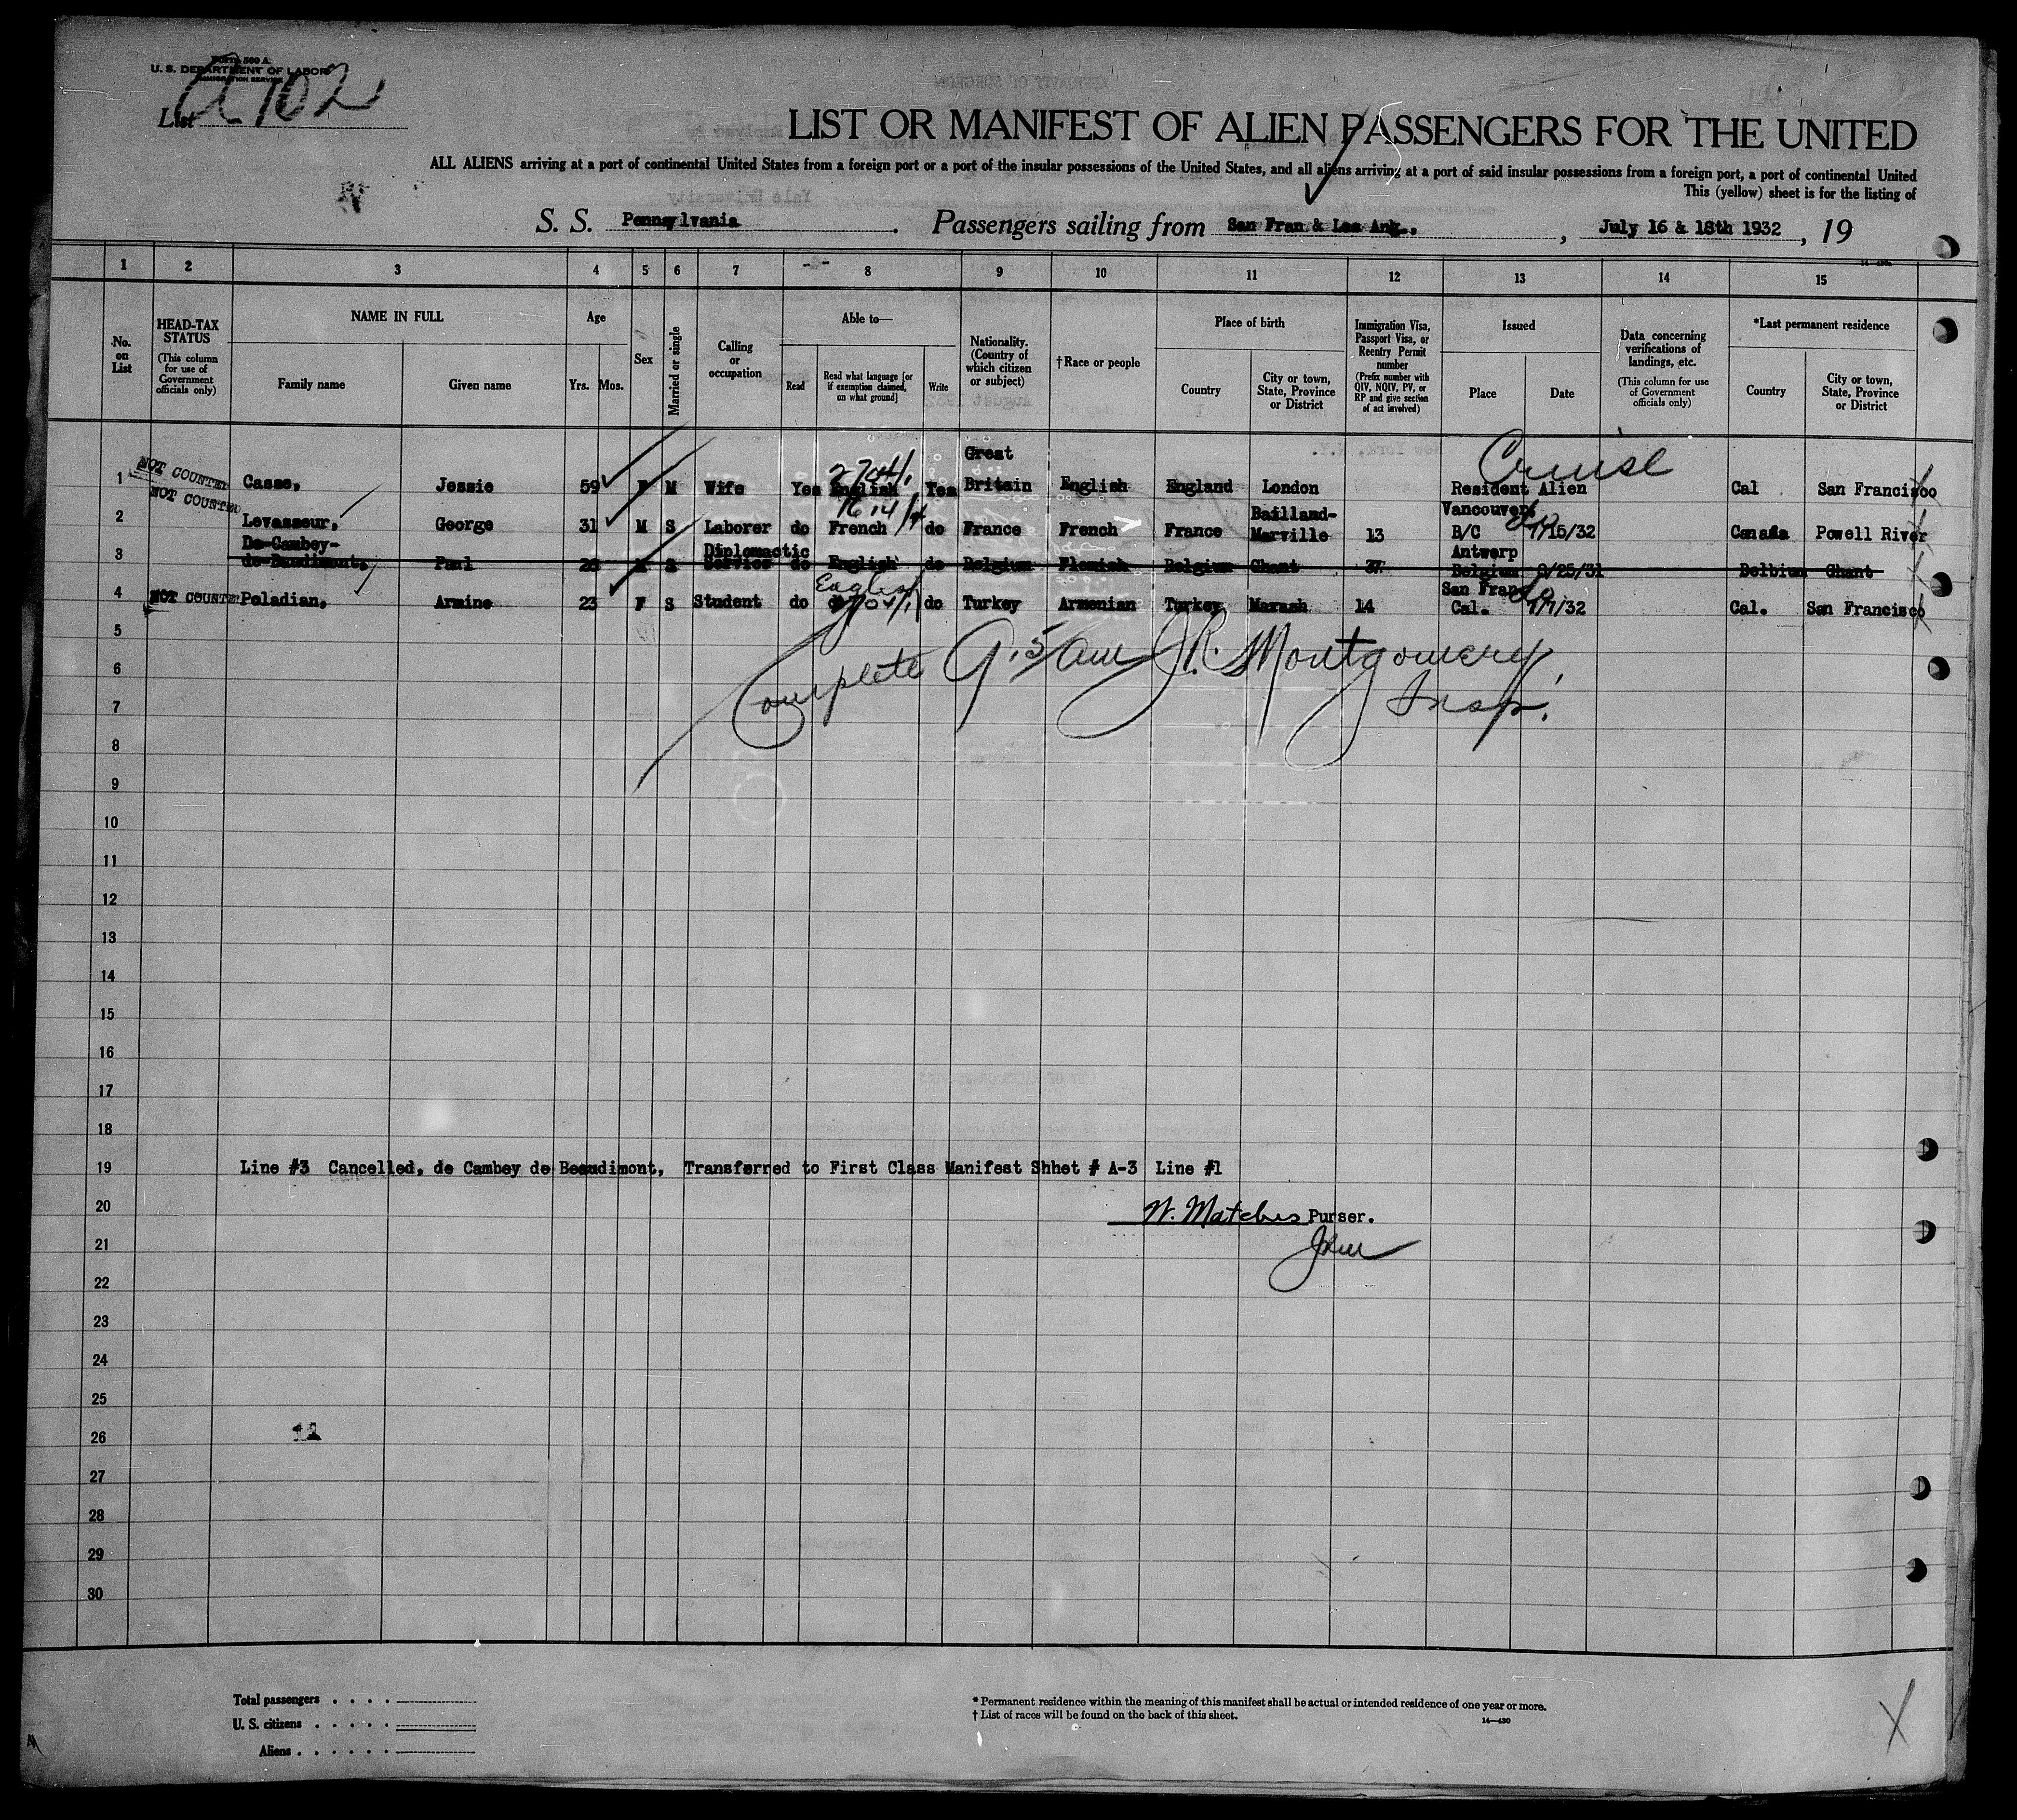 FORM 500 A
U. S. DEPARTMENT OF LABOR
IMMIGRATION SERVICE
List A 702
LIST OR MANIFEST OF ALIEN PASSENGERS FOR THE UNITED
ALL ALIENS arriving at a port of continental United States from a foreign port or a port of the insular possessions of the United States, and all aliens arriving at a port of said insular possessions from a foreign port, a port of continental United
This (yellow) sheet is for the listing of
S. S. Pennsylvania. Passengers sailing from San Fran & Los Ang., , July 16 & 18th 1932, 19
1 2 3 4 5 6 7 8 9 10 11 12 13 14 15
No. on List
HEAD-TAX STATUS
(This column for use of Government officials only)
NAME IN FULL
Family name
Given name
Age
Yrs. Mos.
Sex
Married or single
Calling or occupation
Able to—
Read
Read what language [or if exemption claimed, on what ground]
Write
Nationality. (Country of which citizen or subject)
†Race or people
Place of birth
Country
City or town, State, Province or District
Immigration Visa, Passport Visa, or Reentry Permit number
(Prefix number with QIV, NQIV, PV, or RP and give section of act involved)
Issued
Place
Date
Data concerning verifications of landings, etc.
(This column for use of Government officials only)
*Last permanent residence
Country
City or town, State, Province or District
Cruise
1 NOT COUNTED Casse, Jessie 59 F M Wife Yes English Yes Great Britain English England London Resident Alien Cal San Francisco
2 NOT COUNTED Levasseur, George 31 M S Laborer do French do France French France Bailland-Marville 13 Vancouver, B/C 7/15/32 Canada Powell River
3 De Cambey-de Baudimont, Paul 26 M S Diplomactic Service do English do Belgium Flemish Belgium Ghant 37 Antwerp Belgium 8/25/31 Belbium Ghant
4 NOT COUNTED Peladian, Armine 23 F S Student do English do Turkey Armenian Turkey Marash 14 San Fran Cal. 7/7/32 Cal. San Francisco
5
Complete J.R. Montgomery,
6
Insp.
7
8
9
10
11
12
13
14
15
16
17
18
19 Line #3 Cancelled, de Cambey de Beaudimont, Transferred to First Class Manifest Shhet # A-3 Line #1
20 Purser.
21
22
23
24
25
26
27
28
29
30
Total passengers . . . .
U. S. citizens . . . . .
Aliens . . . . . .
* Permanent residence within the meaning of this manifest shall be actual or intended residence of one year or more.
† List of races will be found on the back of this sheet.
14—430